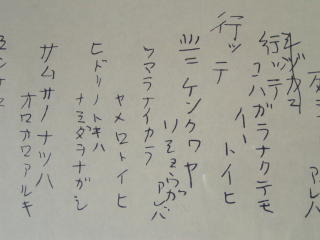 アレバ
行ッテ
コハガラナクテモ
イヽトイヒ
行ッテ
北ニケンクワヤ
ソショウガアレバ
ツマラナイカラ
ヤメロトイヒ
ヒドリノトキハ
ナミダヲナガシ
サムサノナツハ
オロオロアルキ